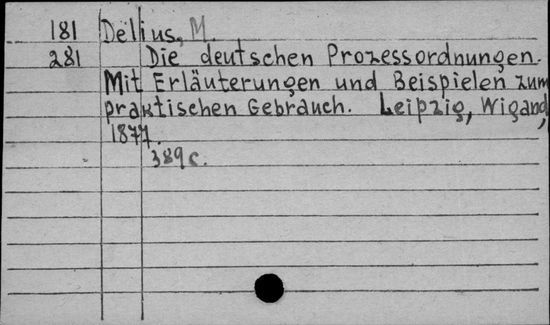 181 Delius, M.
281 Die deutschen Prozessordnungen.
Mit Erläuterungen und Beispielen zum
praktischen Gebrauch. Leipzig, Wigand,
1877.
389 c.